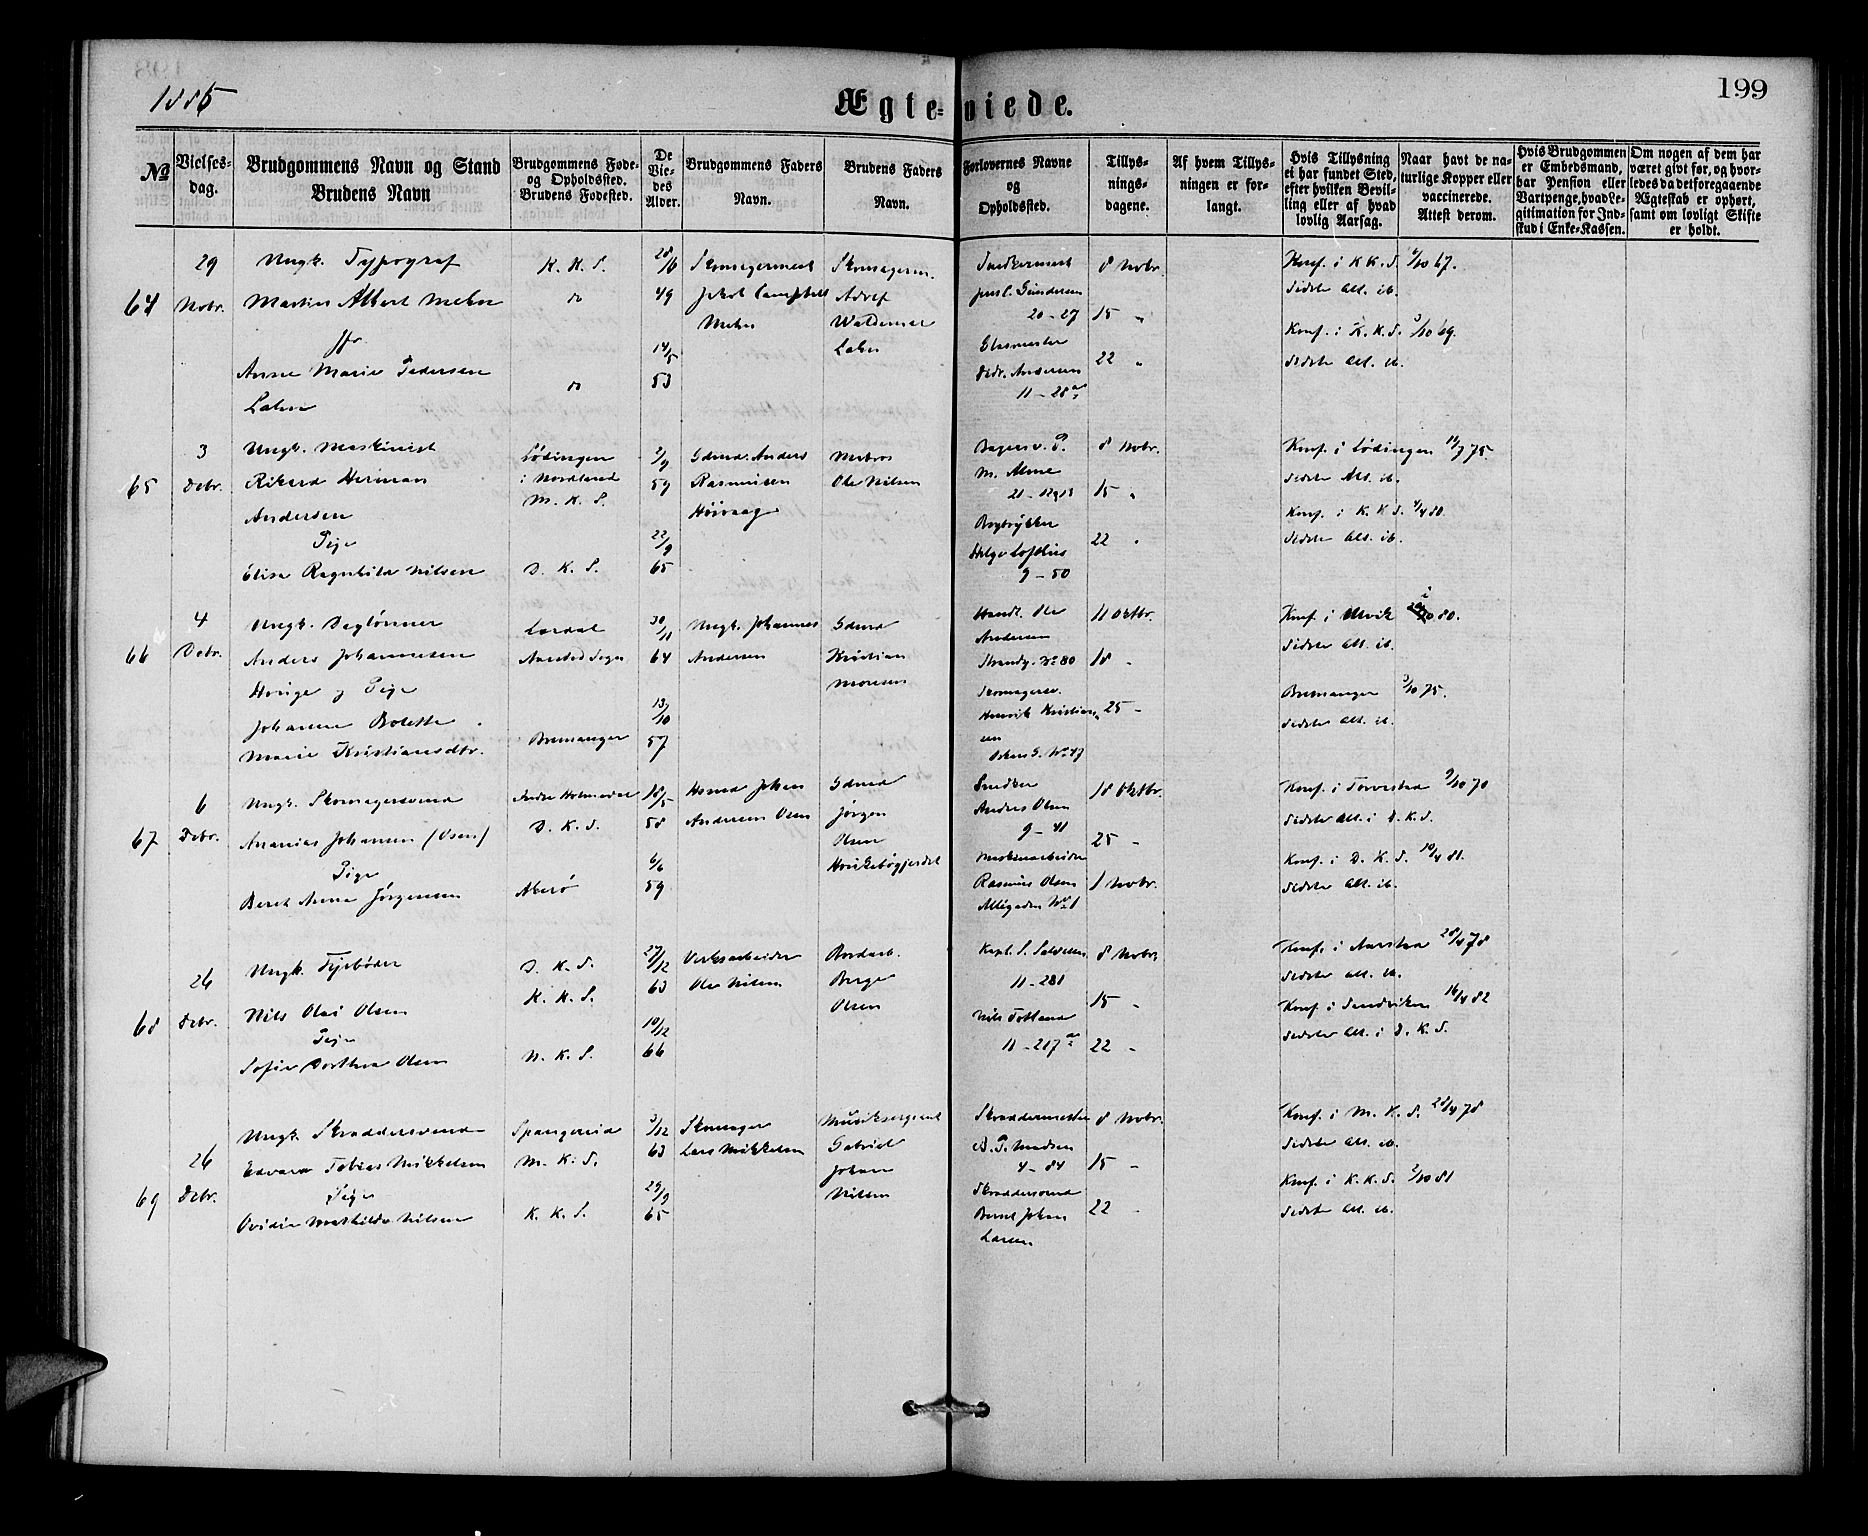 1885
Ægteviede.
199
№
Vielses-
dag.
Brudgommens Navn og Stand
Brudens Navn
Brudgommens Føde-
og Opholdssted.
Brudens Fødested.
De
Vie-
des
Alder.
Brudgommens Faders
Navn.
Brudens Faders
Navn.
Forlovernes Navne
og
Opholdssted.
Tillys-
nings-
dagene.
Af hvem Tillys-
ningen er for-
langt.
Hvis Tillysning
ei har fundet Sted,
efter hvilken Bevil-
ling eller af hvad
lovlig Aarsag.
Naar havt de na-
turlige Kopper eller
vaccinerede.
Attest derom.
Hvis Brudgommen
er Embedsmand,
har Pension eller
Vartpenge, hvad Le-
gitimation for Ind-
skud i Enke-Kassen.
Om nogen af dem har
været givt før, og hvor-
ledes da det foregaaende
Ægteskab er ophørt,
samt om lovligt Skifte
er holdt.
64
29
Novbr.
Ungk. Typograf
Martin Albert
Anne Marie Pedersen
K. K. S.
do
do
28/6
49
14/5
53
Skomagermest
Skomagerm.
Adolf
Waldemar
Snedkermest
20 - 27
Glasmester
Fredr. Andersen
11 - 28 a
8 Novbr.
15 "
22 "
Konf. i K. K. S. 6/10 67.
Sidste Alt. ib.
Konf. i K. K. S. 3/10 69.
Sidste Alt. ib.
65
3
Debr.
Ungk. Maskinist
Rikard Herman
Andersen
Pige
Elise Ragnhild Nilsen
Lødingen
i Nordland
M. K. S.
D. K. S.
2/9
59
22/9
65
Gdmd. Anders
Rasmusen
Matros
Ole Nilsen
Bogtrykker
Helge Lofthus
9 - 50
8 Novbr.
15 "
22 "
Konf. i Lødingen 11/7 75.
Sidste Alt. ib.
Konf. i K. K. S. 4/4 80.
Sidste Alt. ib.
66
4
Debr.
Ungk. Daglønner
Anders Johannesen
Hovige og Pige
Johanne Bolette
Marie Kristiansdtr.
Aarstad Sogn
Bremanger
30/11
64
13/10
57
Ungk. Johannes
Andersen
Gdmd
Kristian
Monsen
Handl. Ole
Andersen
Strandg. № 80
Skomagersv.
Henrik Kristian-
sen
11 Oktbr.
18 -
25 -
Konf. i Ulvik
Sidste Alt. ib.
Bremanger 3/10 75.
Sidste Alt. ib.
67
6
Debr.
Ungk. Skomagersvend
Ananias Johansen (Osen)
Pige
Beret Anna Jørgensen
Indre Holmedal
D. K. S.
Akerø
18/5
58
6/6
59
Hsmd Johan
Andersen Osen
Gdmd
Jørgen
Olsen
Snedker
Andreas Olsen
9 - 41
Maskinarbeider
Rasmus Olsen
Allégaden № 1
18 Oktbr.
25 -
1 Novbr.
Konf. i Torvestad 9/10 70
Sidste Alt. i D. K. S.
Konf. i D. K. S. 10/4 81.
Sidste Alt. ib.
68
26
Debr.
Ungk. Fyrbøder
Nils Olai Olsen
Pige
Sofie Dorthea Olsen
D. K. S.
K. K. S.
N. K. S.
27/12
63
10/12
66
Verksarbeider
Ole Nilsen
Bordarb.
Berge
Olsen
11 - 281
Nils Totland
11 - 217 a
8 Novbr.
15 -
22 -
Konf. i Aarstad 28/4 78
Sidste Alt. ib.
Konf. i Sandviken 16/4 82
Sidste Alt. i D. K. S.
69
26
Debr.
Ungk. Skræddersvend
Edvard Tobias Mikkelsen
Pige
Ovidia Mathilde Nilsen
Spangereid
M. K. S.
K. K. S.
3/12
63
29/9
65
Skomager
Lars Mikkelsen
Musiksergeant
Gabriel
Johan
Nilsen
Skræddermester
A. P. Madsen
4 - 84
Skræddersvend
Bernt Johan
Larsen
8 Novbr.
15 -
22 -
Konf. i M. K. S. 28/4 78
Sidste Alt. ib.
Konf. i K. K. S. 2/10 81
Sidste Alt. ib.